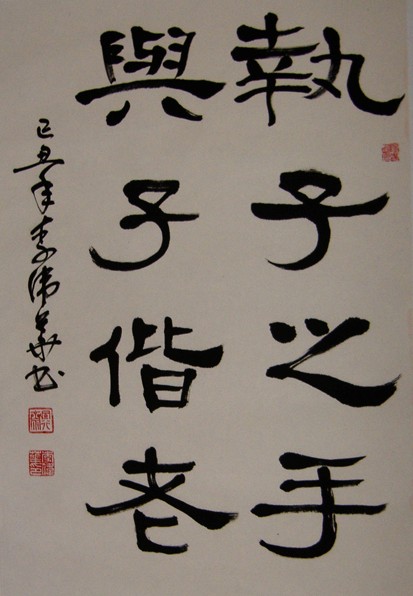 執子之手
與子偕老
己丑年李沛華书